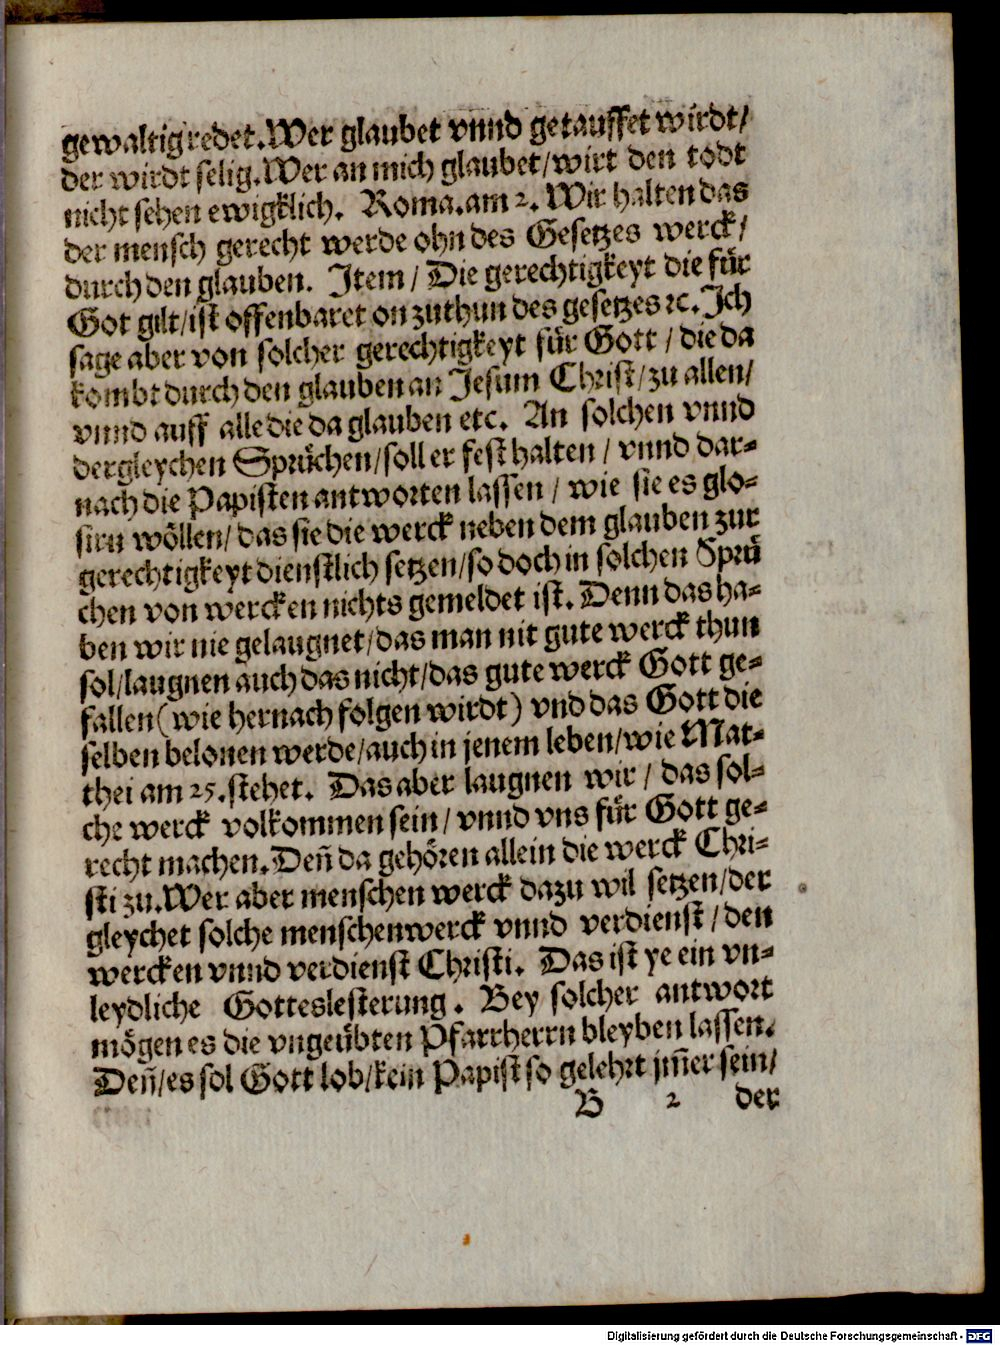 gewaltig redet. Wer glaubet vnnd getauffet wirdt/
der wirdt selig. Wer an mich glaubet/wirt den todt
nicht sehen ewigklich. Roma. am 2. Wir halten das
der mensch gerecht werde ohn des Gesetzes werck/
durch den glauben. Item/ Die gerechtigkeyt die für
Got gilt/ist offenbaret on zuthun des gesetzes ꝛc. Ich
sage aber von solcher gerechtigkeyt für Gott/ die da
kombt durch den glauben an Jesum Christ/zu allen/
vnnd auff alle die da glauben etc. An solchen vnnd
dergleychen Sprüchen/soll er fest halten/ vnnd dar-
nach die Papisten antworten lassen/ wie sie es glo-
sirn wöllen/ das sie die werck neben dem glauben zur
gerechtigkeyt dienstlich setzen/so doch in solchen Sprü
chen von wercken nichts gemeldet ist. Denn das ha-
ben wir nie gelaugnet/das man nit gute werck thun
sol/laugnen auch das nicht/das gute werck Gott ge-
fallen(wie hernach folgen wirdt) vnd das Gott die
selben belonen werde/auch in jenem leben/wie Mat-
thei am 25. stehet. Das aber laugnen wir/ das sol-
che werck volkommen sein/ vnnd vns für Gott ge-
recht machen. Deñ da gehören allein die werck Chri-
sti zu. Wer aber menschen werck dazu wil setzen/der
gleychet solche menschenwerck vnnd verdienst/den
wercken vnnd verdienst Christi. Das ist ye ein vn-
leydliche Gotteslesterung. Bey solcher antwort
mögen es die vngeübten Pfarrherrn bleyben lassen.
Deñ/es sol Gott lob/kein Papist so gelehrt jm̃er sein/
B 2 der
Digitalisierung gefördert durch die Deutsche Forschungsgemeinschaft - DFG